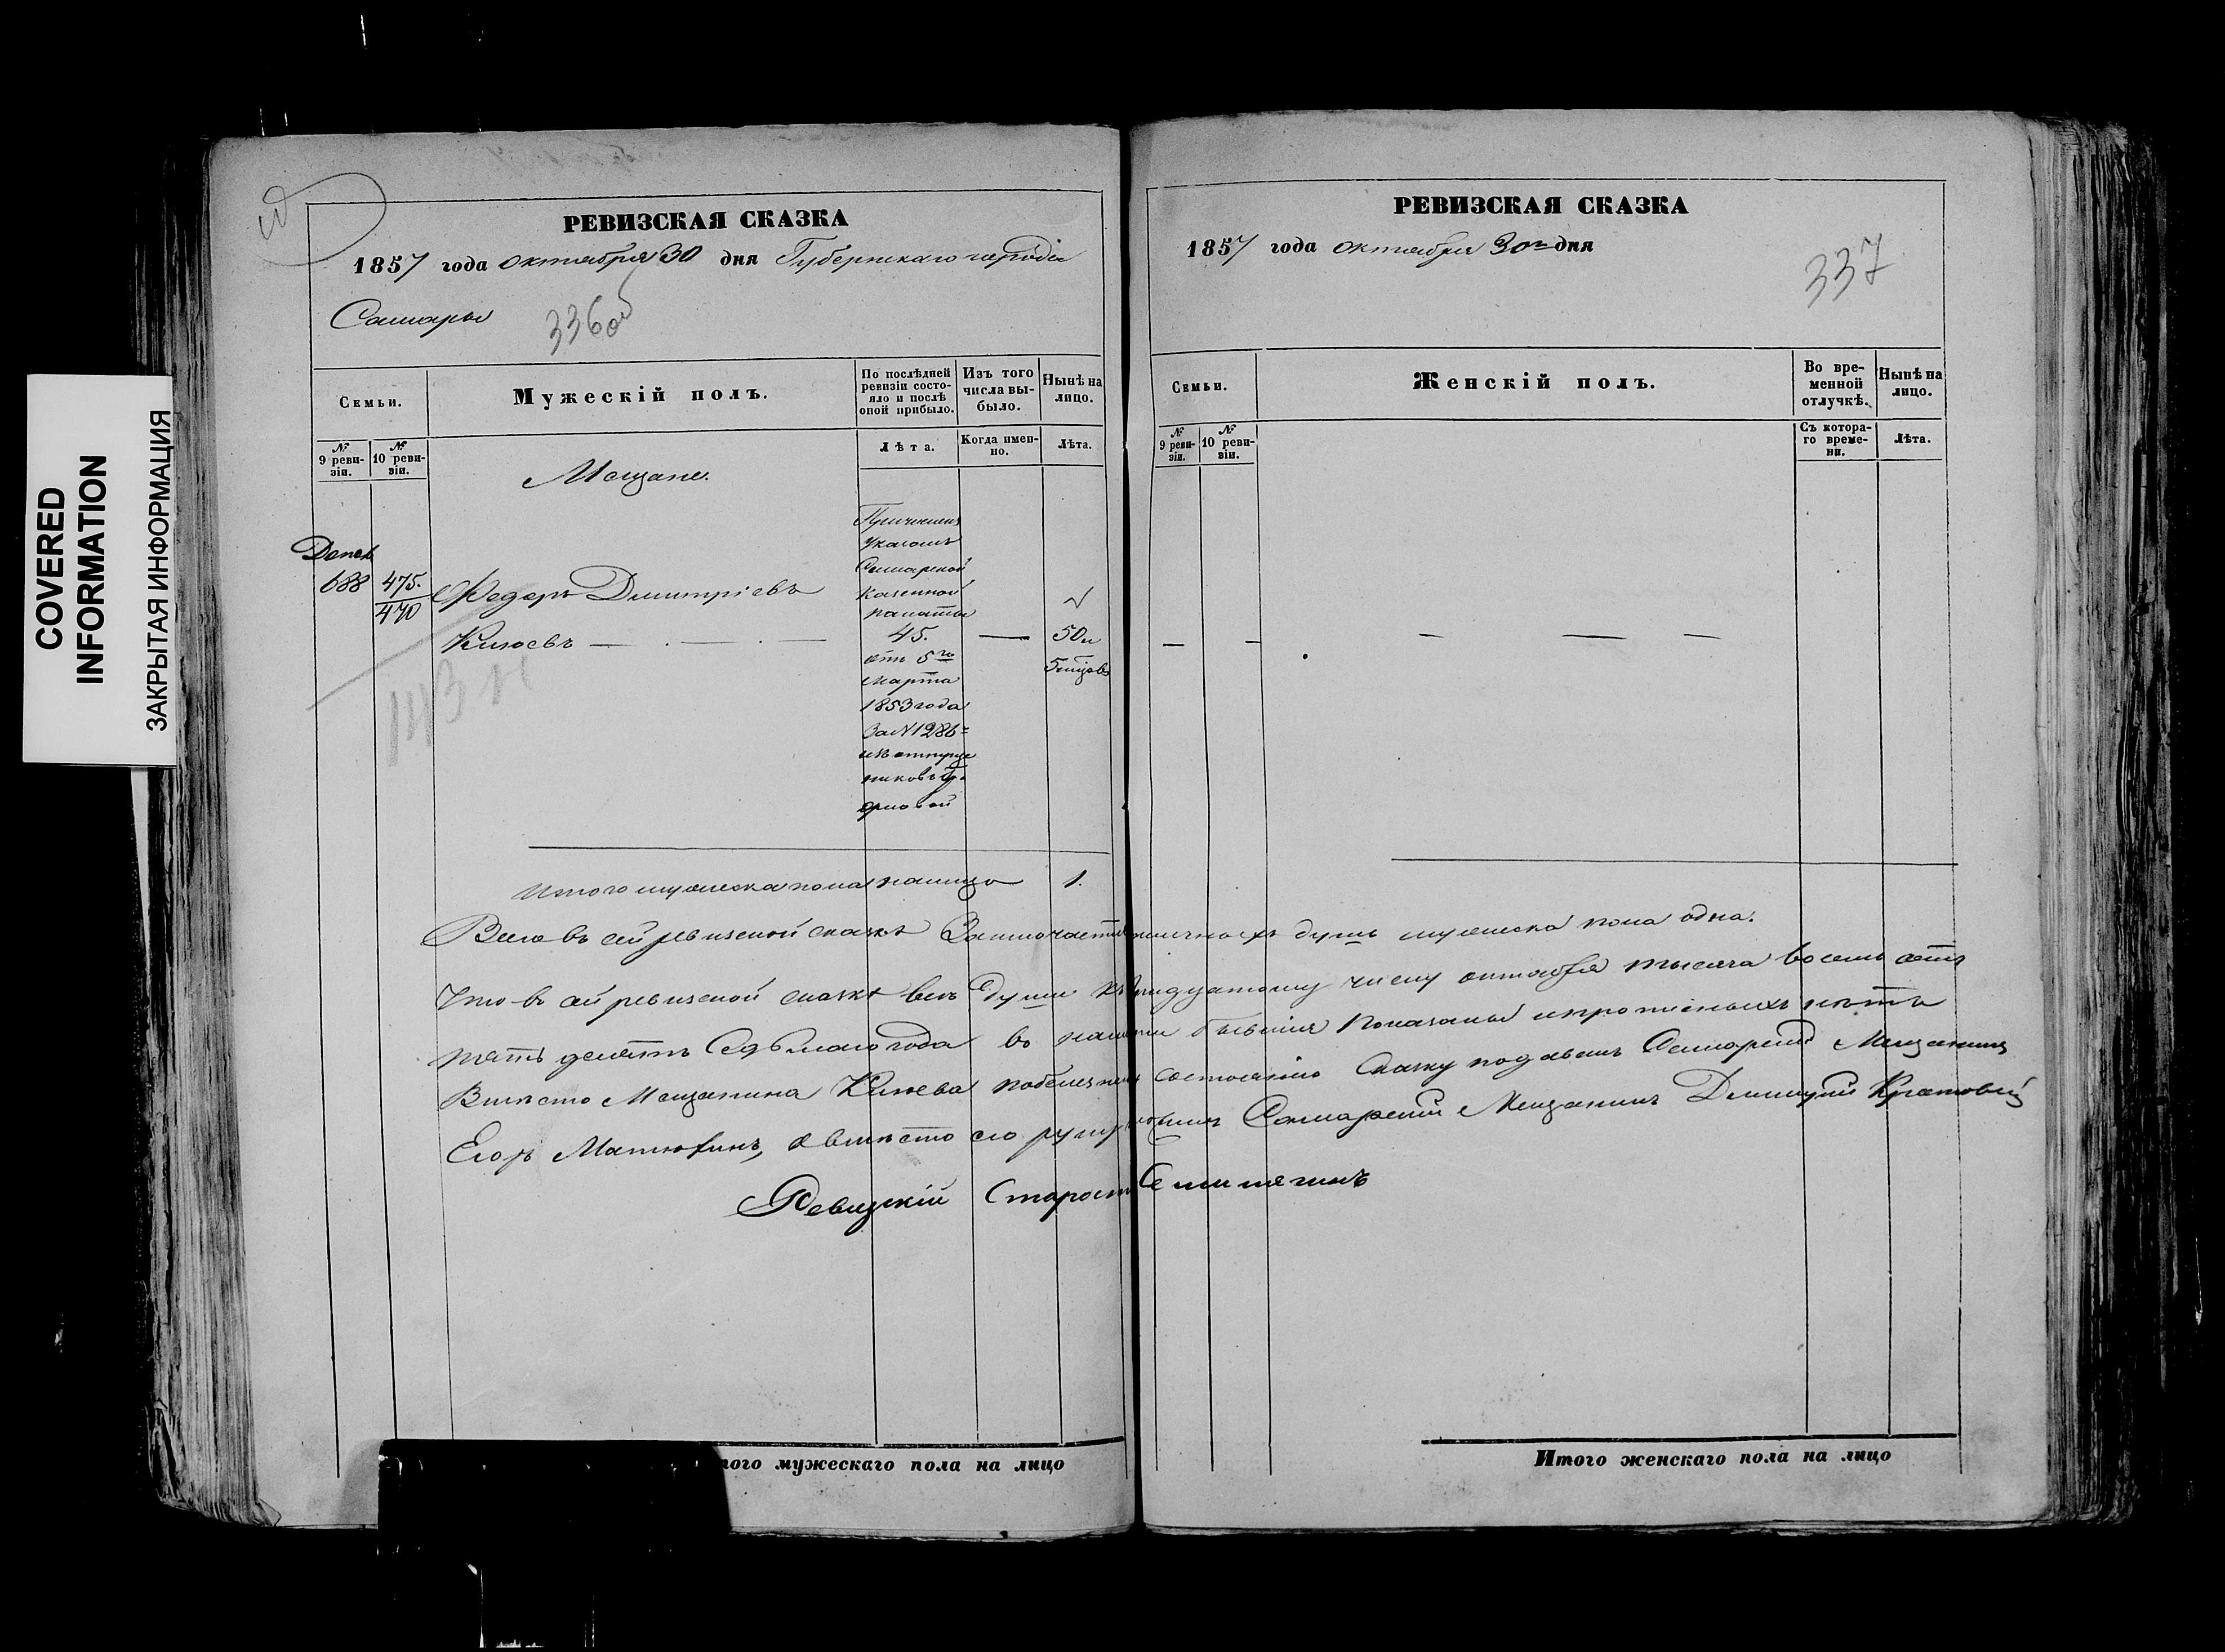 COVERED
INFORMATION
ЗАКРЫТАЯ ИНФОРМАЦИЯ
РЕВИЗСКАЯ СКАЗКА
1857 года октября 30 дня Губернскаго города
Самары
336 об
Семьи.
Мужескій полъ.
По послѣдней ревизіи состояло и послѣ оной прибыло.
Изъ того числа выбыло.
Нынѣ на лицо.
№ 9 ревизіи.
№ 10 ревизіи.
Лѣта.
Когда именно.
Лѣта.
Мещане.
Допол
688
475.
470
Федоръ Дмитріевъ
Клюевъ
Причисленъ
Указомъ
Самарской
Казенной
палаты
45.
отъ 5го
марта
1853 года
За № 1286
изъ отпуще
никовъ
50 и
5 мцовъ
Итого мужеска пола налицо 1.
РЕВИЗСКАЯ СКАЗКА
1857 года октября 30го дня
337
Семьи.
Женскій полъ.
Во временной отлучкѣ.
Нынѣ на лицо.
№ 9 ревизіи.
№ 10 ревизіи.
Съ котораго времени.
Лѣта.
Всего въ сей ревизской сказкѣ Заключается наличныхъ душъ мужеска пола одна.
Что въ сей ревизской сказкѣ всѣ души къ тридцатому числу октября тысяча восемь сотъ
пять десятъ Седьмаго года въ наличіи бывшія Показаны и прописныхъ нѣтъ
Вмѣсто Мещанина Клюева состоянію Сказку подавалъ Самарскій Мещанинъ
Егоръ Матюхинъ, а вмѣсто его Самарскій Мещанинъ Дмитрій
Ревизскій Староста
того мужескаго пола на лицо
Итого женскаго пола на лицо